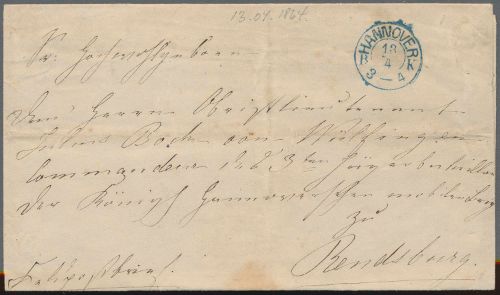 13.04.1864
HANNOVER
13
4
B K
3 – 4
Sr. Hochwohlgeboren
dem Herrn Obristlieutenant
Julius Bock von Wülfingen
Commandeur des 3ten Jägerbataillon
der Königl Hannoverschen mobilen
zu
Rendsburg.
Feldpostbrief.